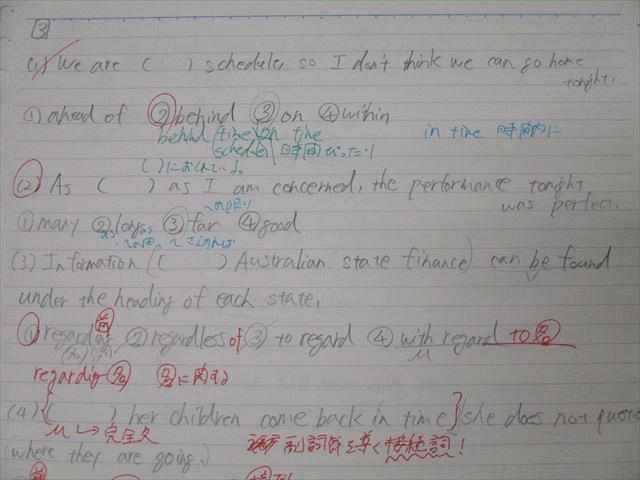 3
(1) We are ( ) schedule, so I don't think we can go home
tonight.
① ahead of ② behind ③ on ④ within
behind time on time in time 時間内に
schedule 時間ぴったり
( )におくれている。
(2) As ( ) as I am concerned, the performance tonight
was perfect.
① many ② long ③ far ④ good
as as
(3) Information ( ) Australian state finance) can be found
under the heading of each state.
① regarding 前 ② regardless of ③ to regard ④ with regard to 名
regarding 名 名に関する
(4) ( ) her children come back in time she does not question
→ 完全文 副詞節を導く接続詞!
(where they are going.)